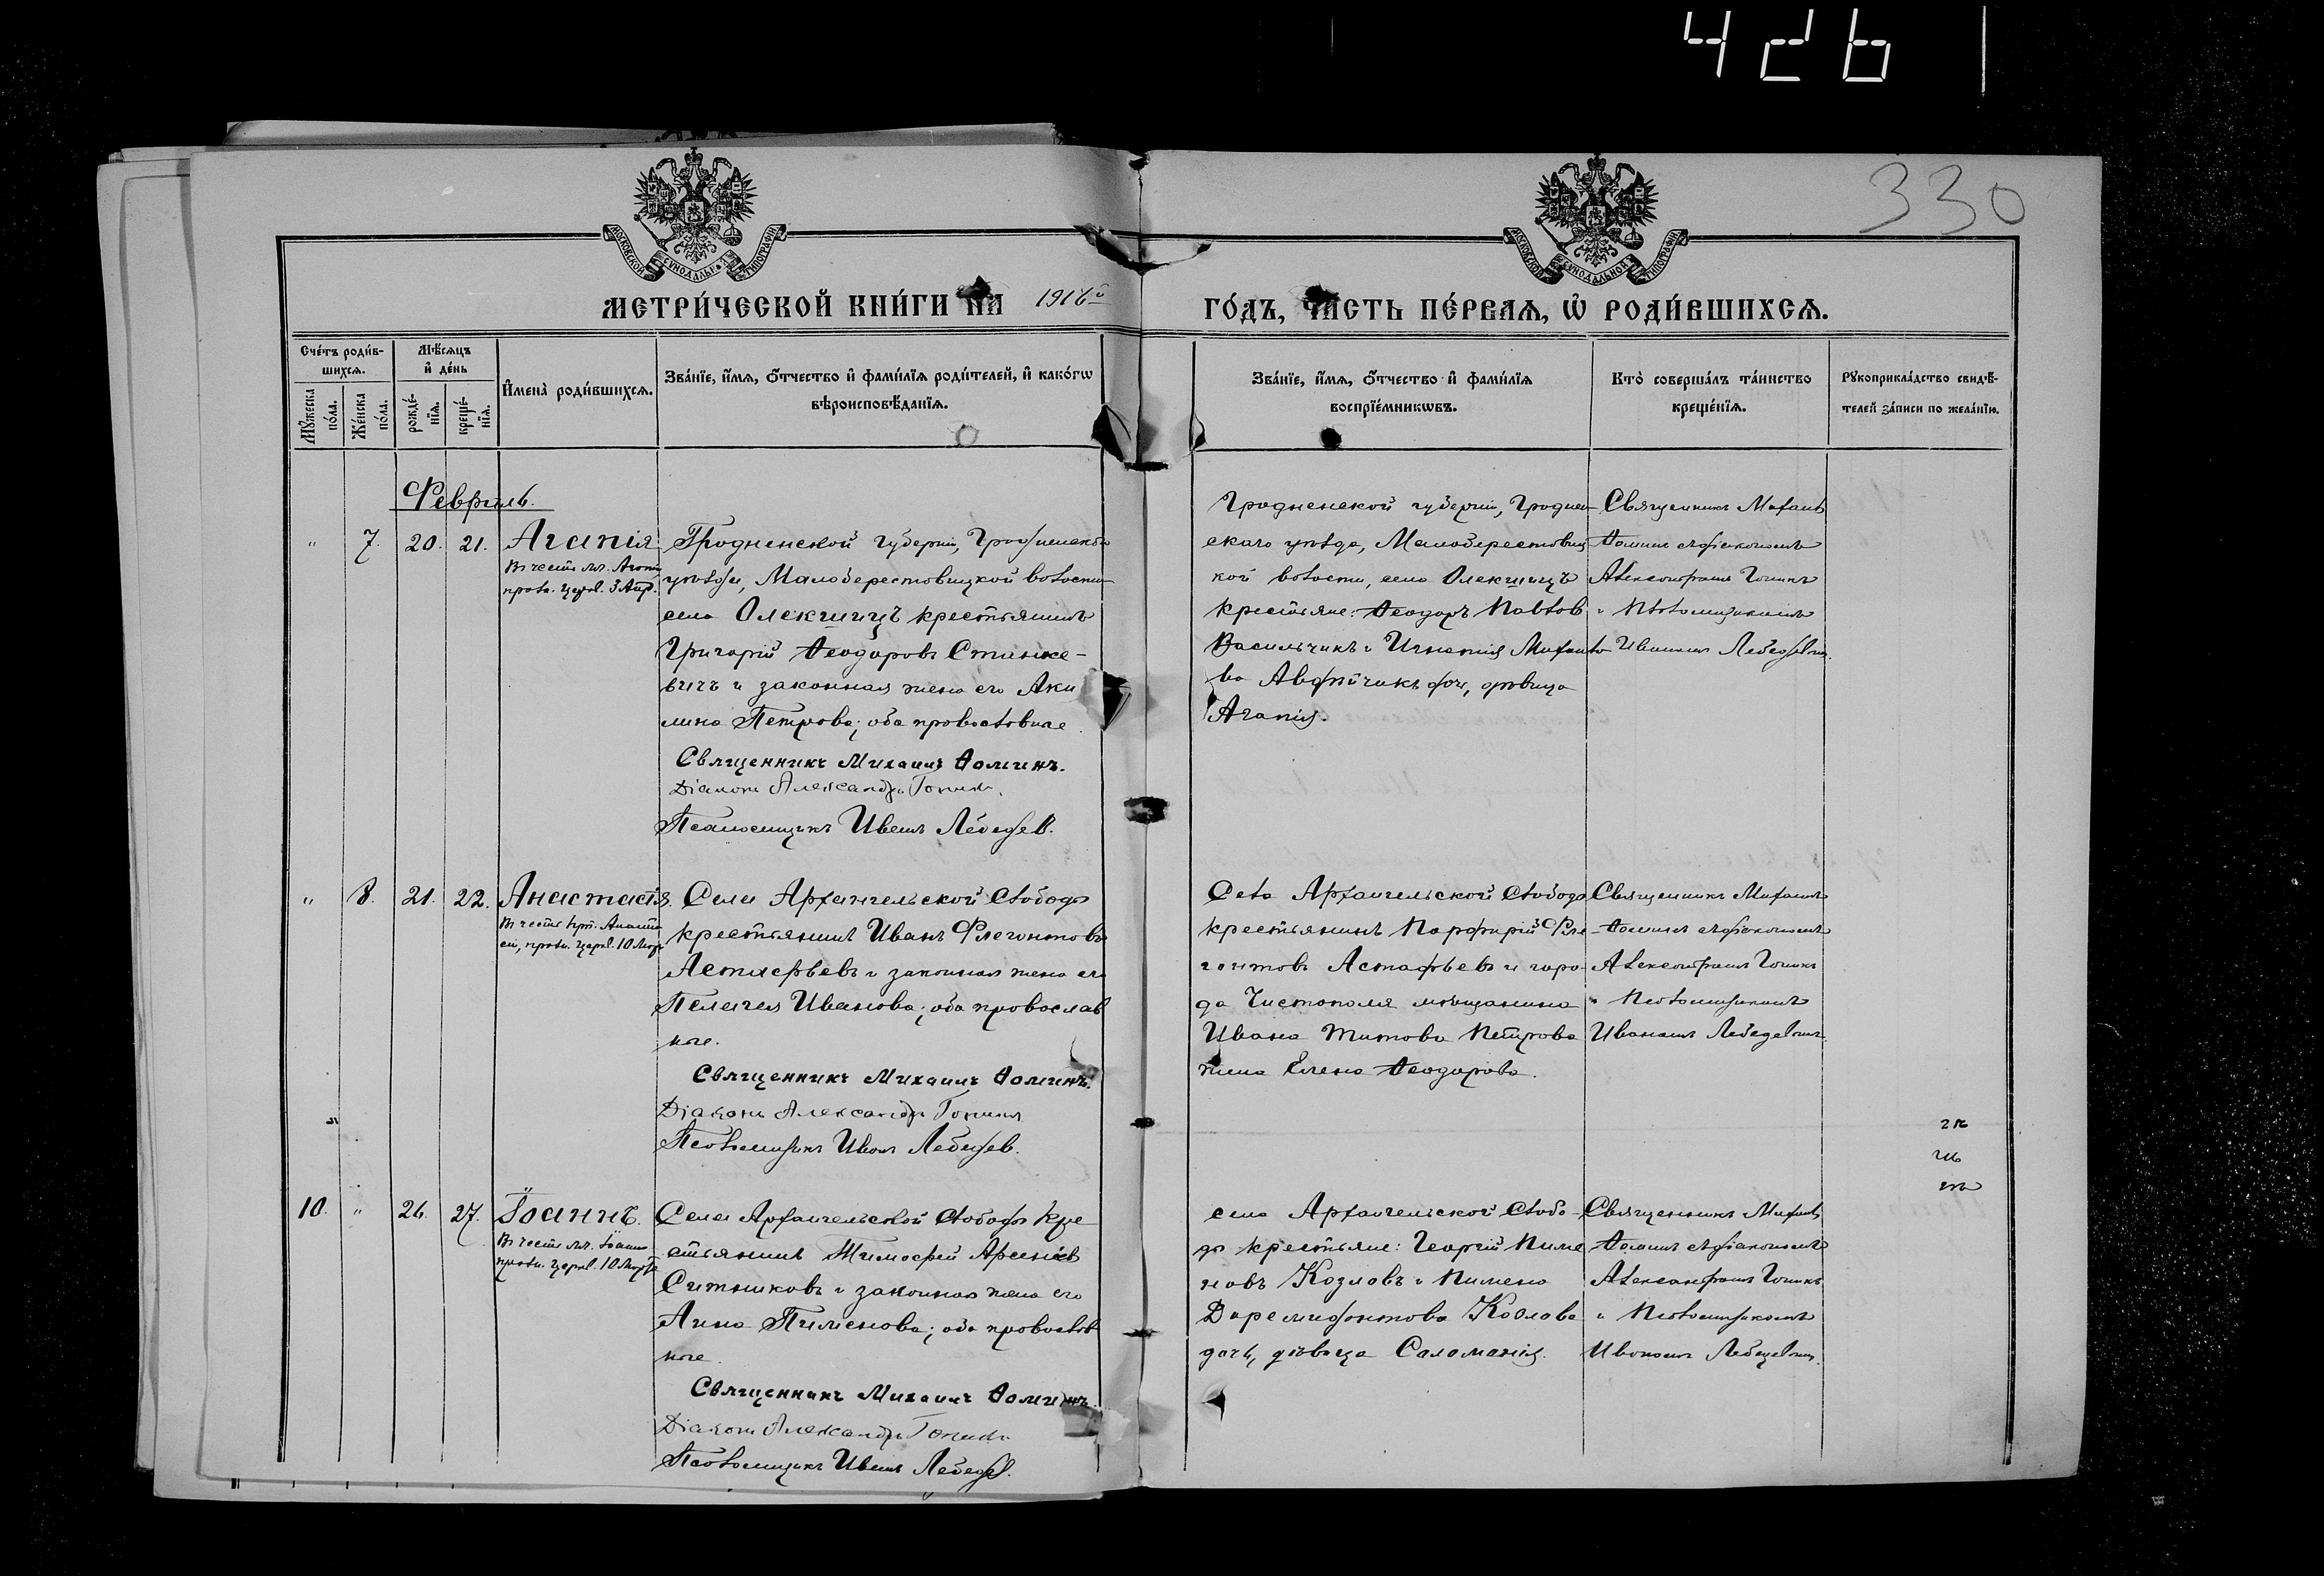 426
330
МОСКОВСКОЙ СѴНОДАЛЬНОЙ ТИПОГРАФІИ
МОСКОВСКОЙ СѴНОДАЛЬНОЙ ТИПОГРАФІИ
МЕТРИ́ЧЕСКОЙ КНИ́ГИ НА 1916й ГО́ДЪ, ЧАСТЬ ПЕ́РВАЯ, Ѡ҆ РОДИ́ВШИХСѦ.
Сче́тъ роди́в-
шихсѧ.
Мꙋ́жеска по́ла.
Же́нска по́ла.
Мѣ́сѧцъ
и҆ де́нь
рожде́-
нїѧ.
креще́-
нїѧ.
И҆мена̀ роди́вшихсѧ.
Зва́нїе, и҆́мѧ, ѻ҆́тчество и҆ фами́лїѧ роди́телей, и҆ како́гѡ
вѣроисповѣ́данїѧ.
Зва́нїе, и҆́мѧ, ѻ҆́тчество и҆ фами́лїѧ
воспрїе́мникѡвъ.
Кто̀ соверша́лъ та́инство
креще́нїѧ.
Рꙋкоприкла́дство свидѣ́-
телей за́писи по жела́нїю.
Февраль.
" 7. 20. 21. Агапія
Въ честь мч. Агапіи
правосл. церк. 3 Апр.
Гродненской губерніи, Гродненскаго
уѣзда, Малоберестовицкой волости
села Олекшицъ крестьянинъ
Григорій Ѳеодоровъ Станке-
вичъ и законная жена его Аки
лина Петрова; оба православные
Священникъ Михаилъ Ѳоминъ.
Діаконъ Александръ Гонинъ.
Псаломщикъ Иванъ Лебедев.
Гродненской губерніи, Гроднен
скаго уѣзда, Малоберестовиц
кой волости, села Олекшицъ
крестьяне: Ѳеодоръ Павлов
Васильчикъ и Игнатія Михайло
ва Авдѣйчикъ дочь, дѣвица
Агапія.
Священникъ Михаилъ
Ѳоминъ съ діакономъ
Александромъ Гонинъ
и Псаломщикомъ
Иваномъ Лебедевым.
" 8. 21. 22. Анастасія.
Въ честь прп. Анаста
сіи, правосл. церк. 10 Мар
Села Архангельской Слободы
крестьянинъ Иванъ Флегонтовъ
Астафьевъ и законная жена его
Пелагея Иванова; оба православ
ные.
Священникъ Михаилъ Ѳоминъ.
Діаконъ Александръ Гонинъ
Псаломщикъ Иванъ Лебедев.
Села Архангельской Слободы
крестьянинъ Порфирій Фле
гонтовъ Астафьевъ и горо-
да Чистополя мѣщанина
Ивана Титова Петрова
жена Елена Ѳеодорова.
Священникъ Михаилъ
Ѳоминъ съ діакономъ
Александромъ Гонинъ
и Псаломщикомъ
Иваномъ Лебедевым.
10. " 26. 27. Іоаннъ.
Въ честь мч. Іоанна
правосл. церкв. 10 Марта
Села Архангельской Слободы кре
стьянинъ Тимофей Арсеніев
Ситниковъ и законная жена его
Анна Пименова; оба православ
ные.
Священникъ Михаилъ Ѳоминъ.
Діаконъ Александръ Гонинъ
Псаломщикъ Иванъ Лебедев.
села Архангельской Слобо-
ды крестьяне: Георгій Пиме
новъ Козловъ и Пимена
Козлова
дочь, дѣвица Саломанія.
Священникъ Михаилъ
Ѳоминъ съ діакономъ
Александромъ Гонинъ
и Псаломщикомъ
Иваномъ Лебедевым.